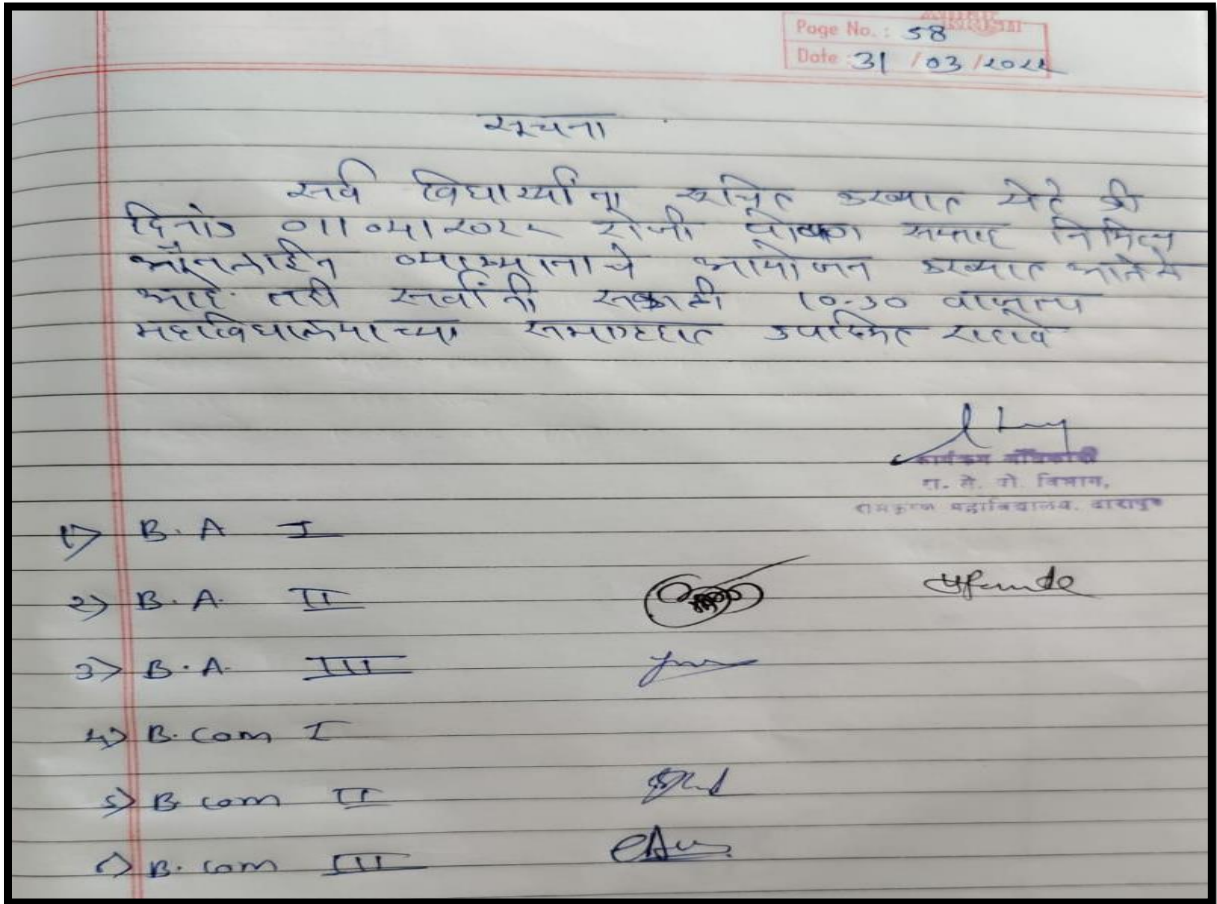 Page No.: 58
Date 31 / 03 / २०२२
सूचना
सर्व विद्यार्थ्यांना सूचित करण्यात येते की
दिनांक 01/04/२०२२ रोजी पोषण सप्ताह निमित्त
ऑनलाईन व्याख्यानाचे आयोजन करण्यात आलेले
आहे. तरी सर्वांनी सकाळी 10-30 वाजता
महाविद्यालयाच्या सभागृहात उपस्थित राहावे
कार्यक्रम अधिकारी
रा. से. यो. विभाग,
रामकृष्ण महाविद्यालय, दारापुर
1) B. A I
2) B. A. II
3) B. A. III
4) B. Com I
5) B com II
6) B. com III